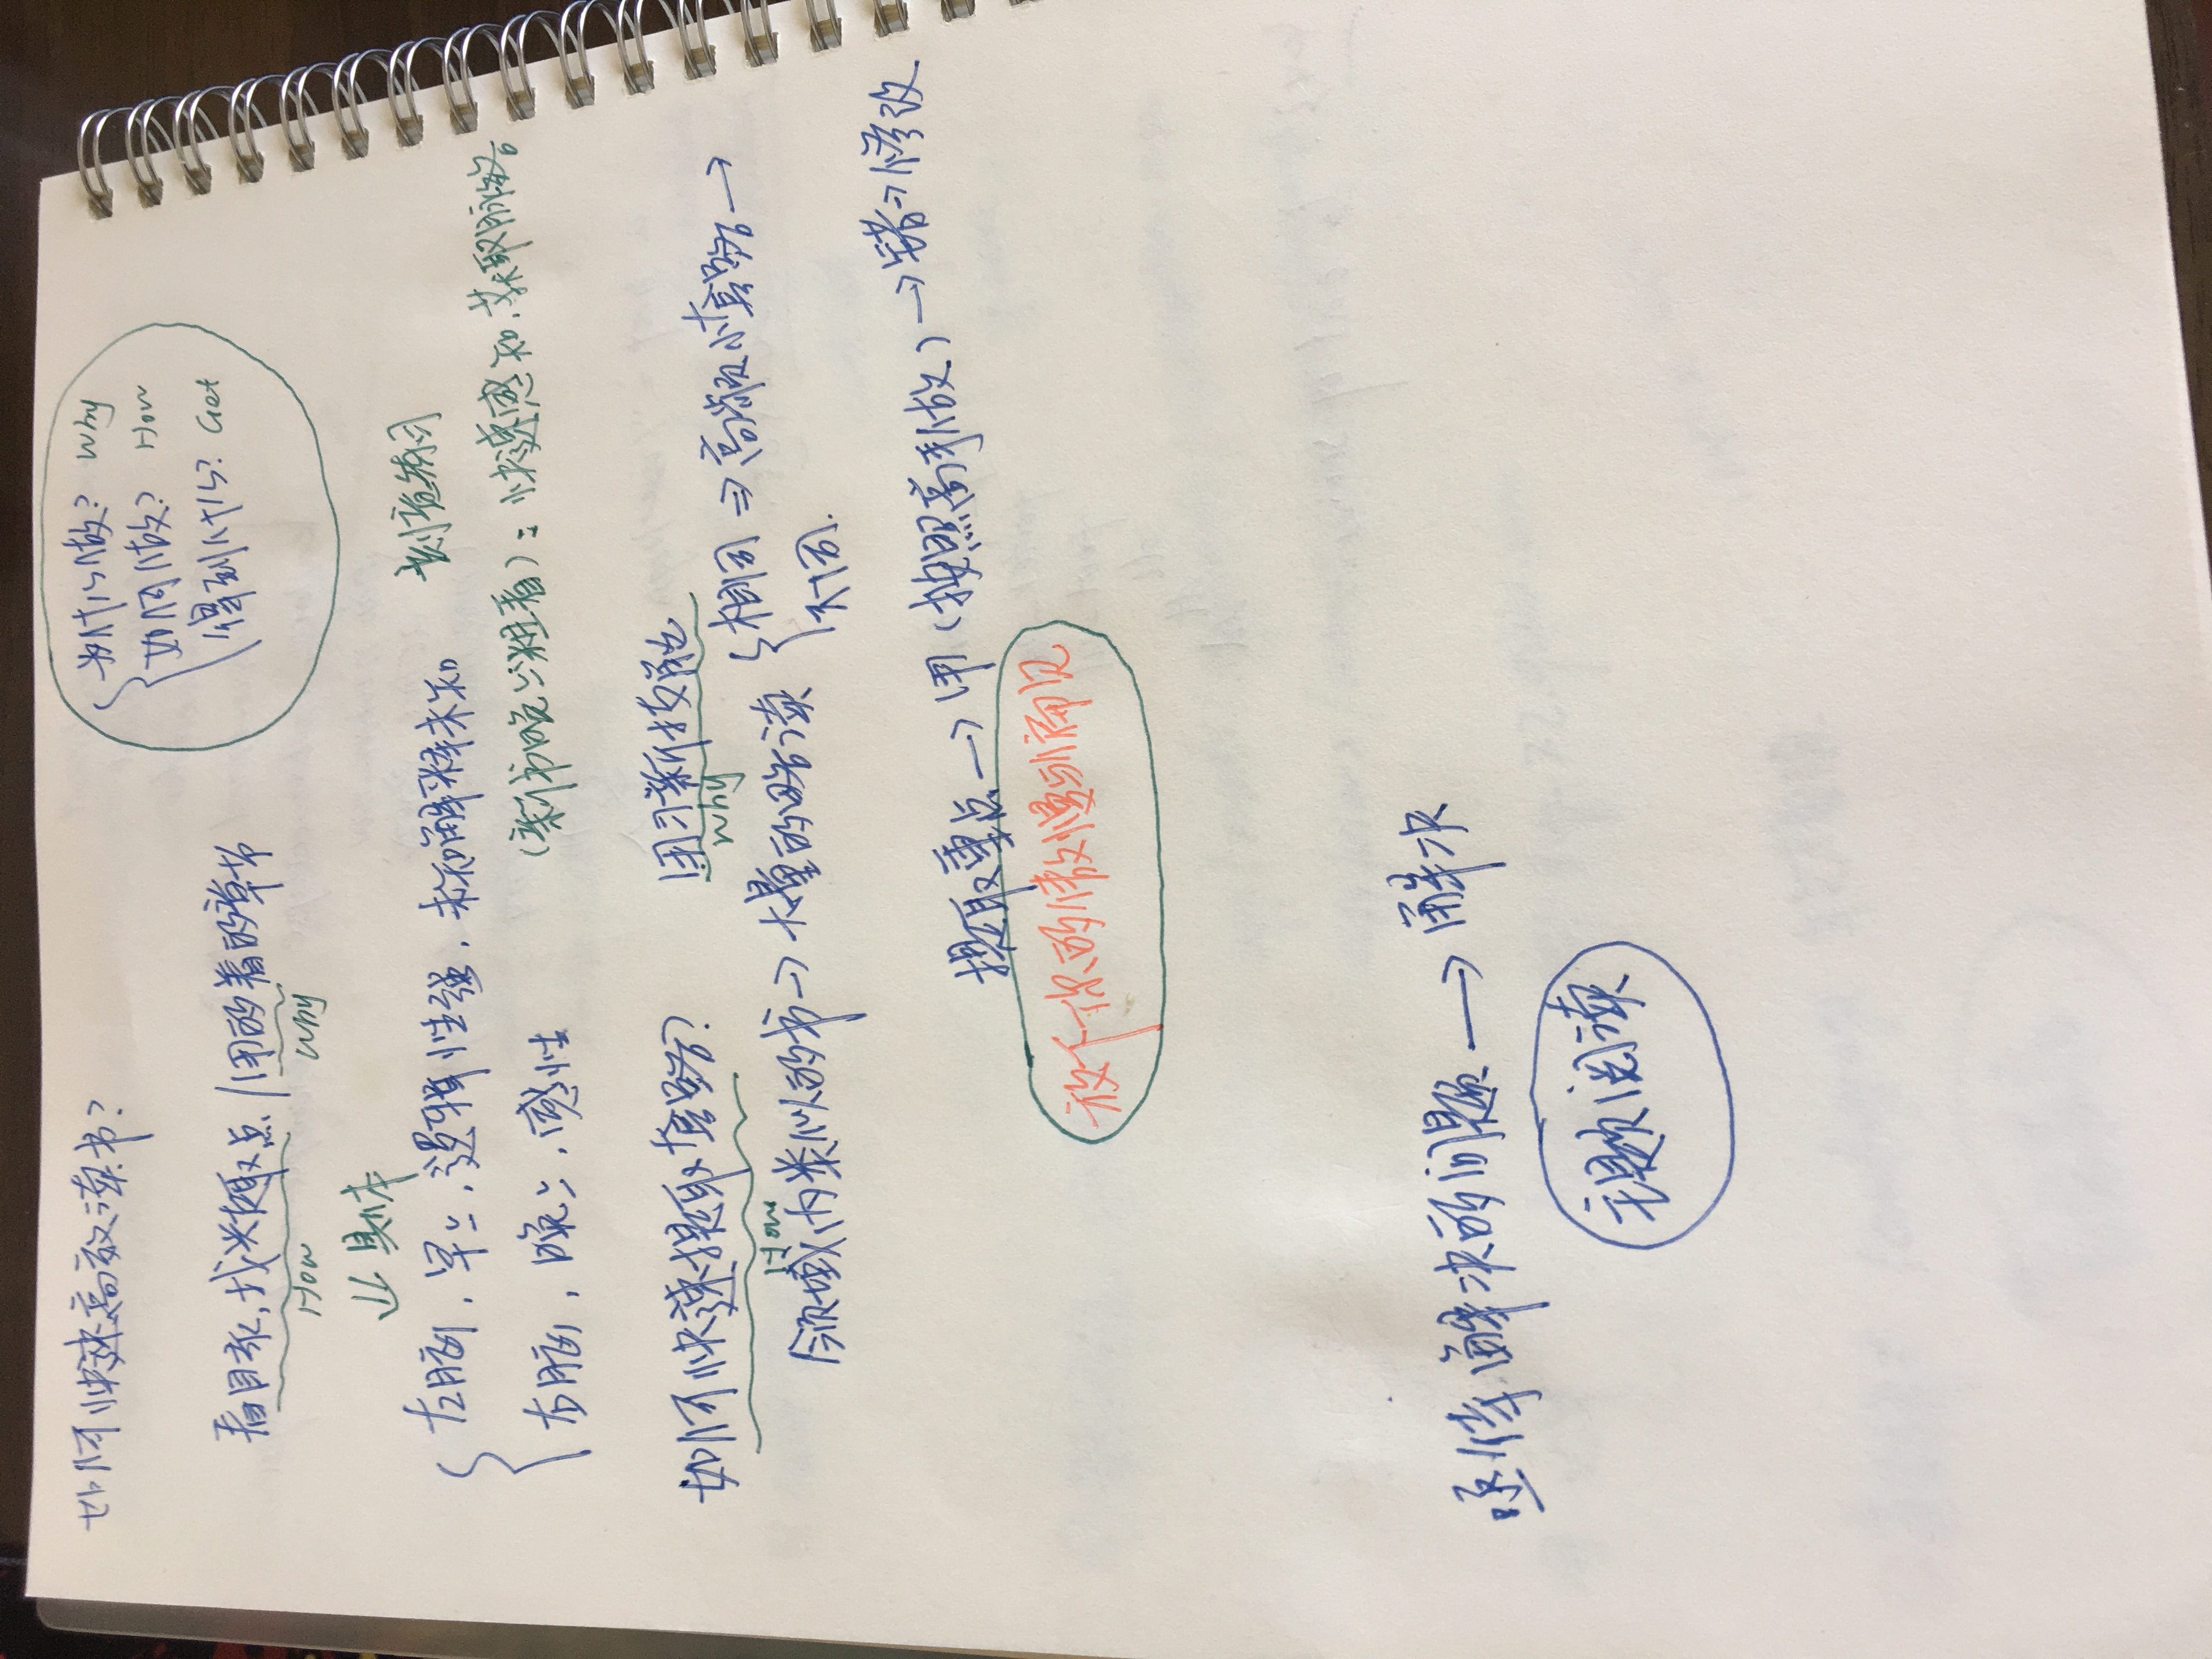 如何快速高效读书?
为什么做? Why
如何做? How
得到什么? Get
看目录,找兴趣点/用的着的章节
How Why
具体
左脑,早上,逻辑性强,未知解释未知
刻意练习
右脑,晚上,感性
(新书晚上粗看):快速感知,获取脉络
如何快速提取套路? 用习新技能
How Why
领域内类似的书→大量的略读 { 相同⇒高频小套路→
不同.
提取重点→用(按照高手做)→错→修改
放下你的傲慢与偏见
亟待解决的问题→解决
主题阅读